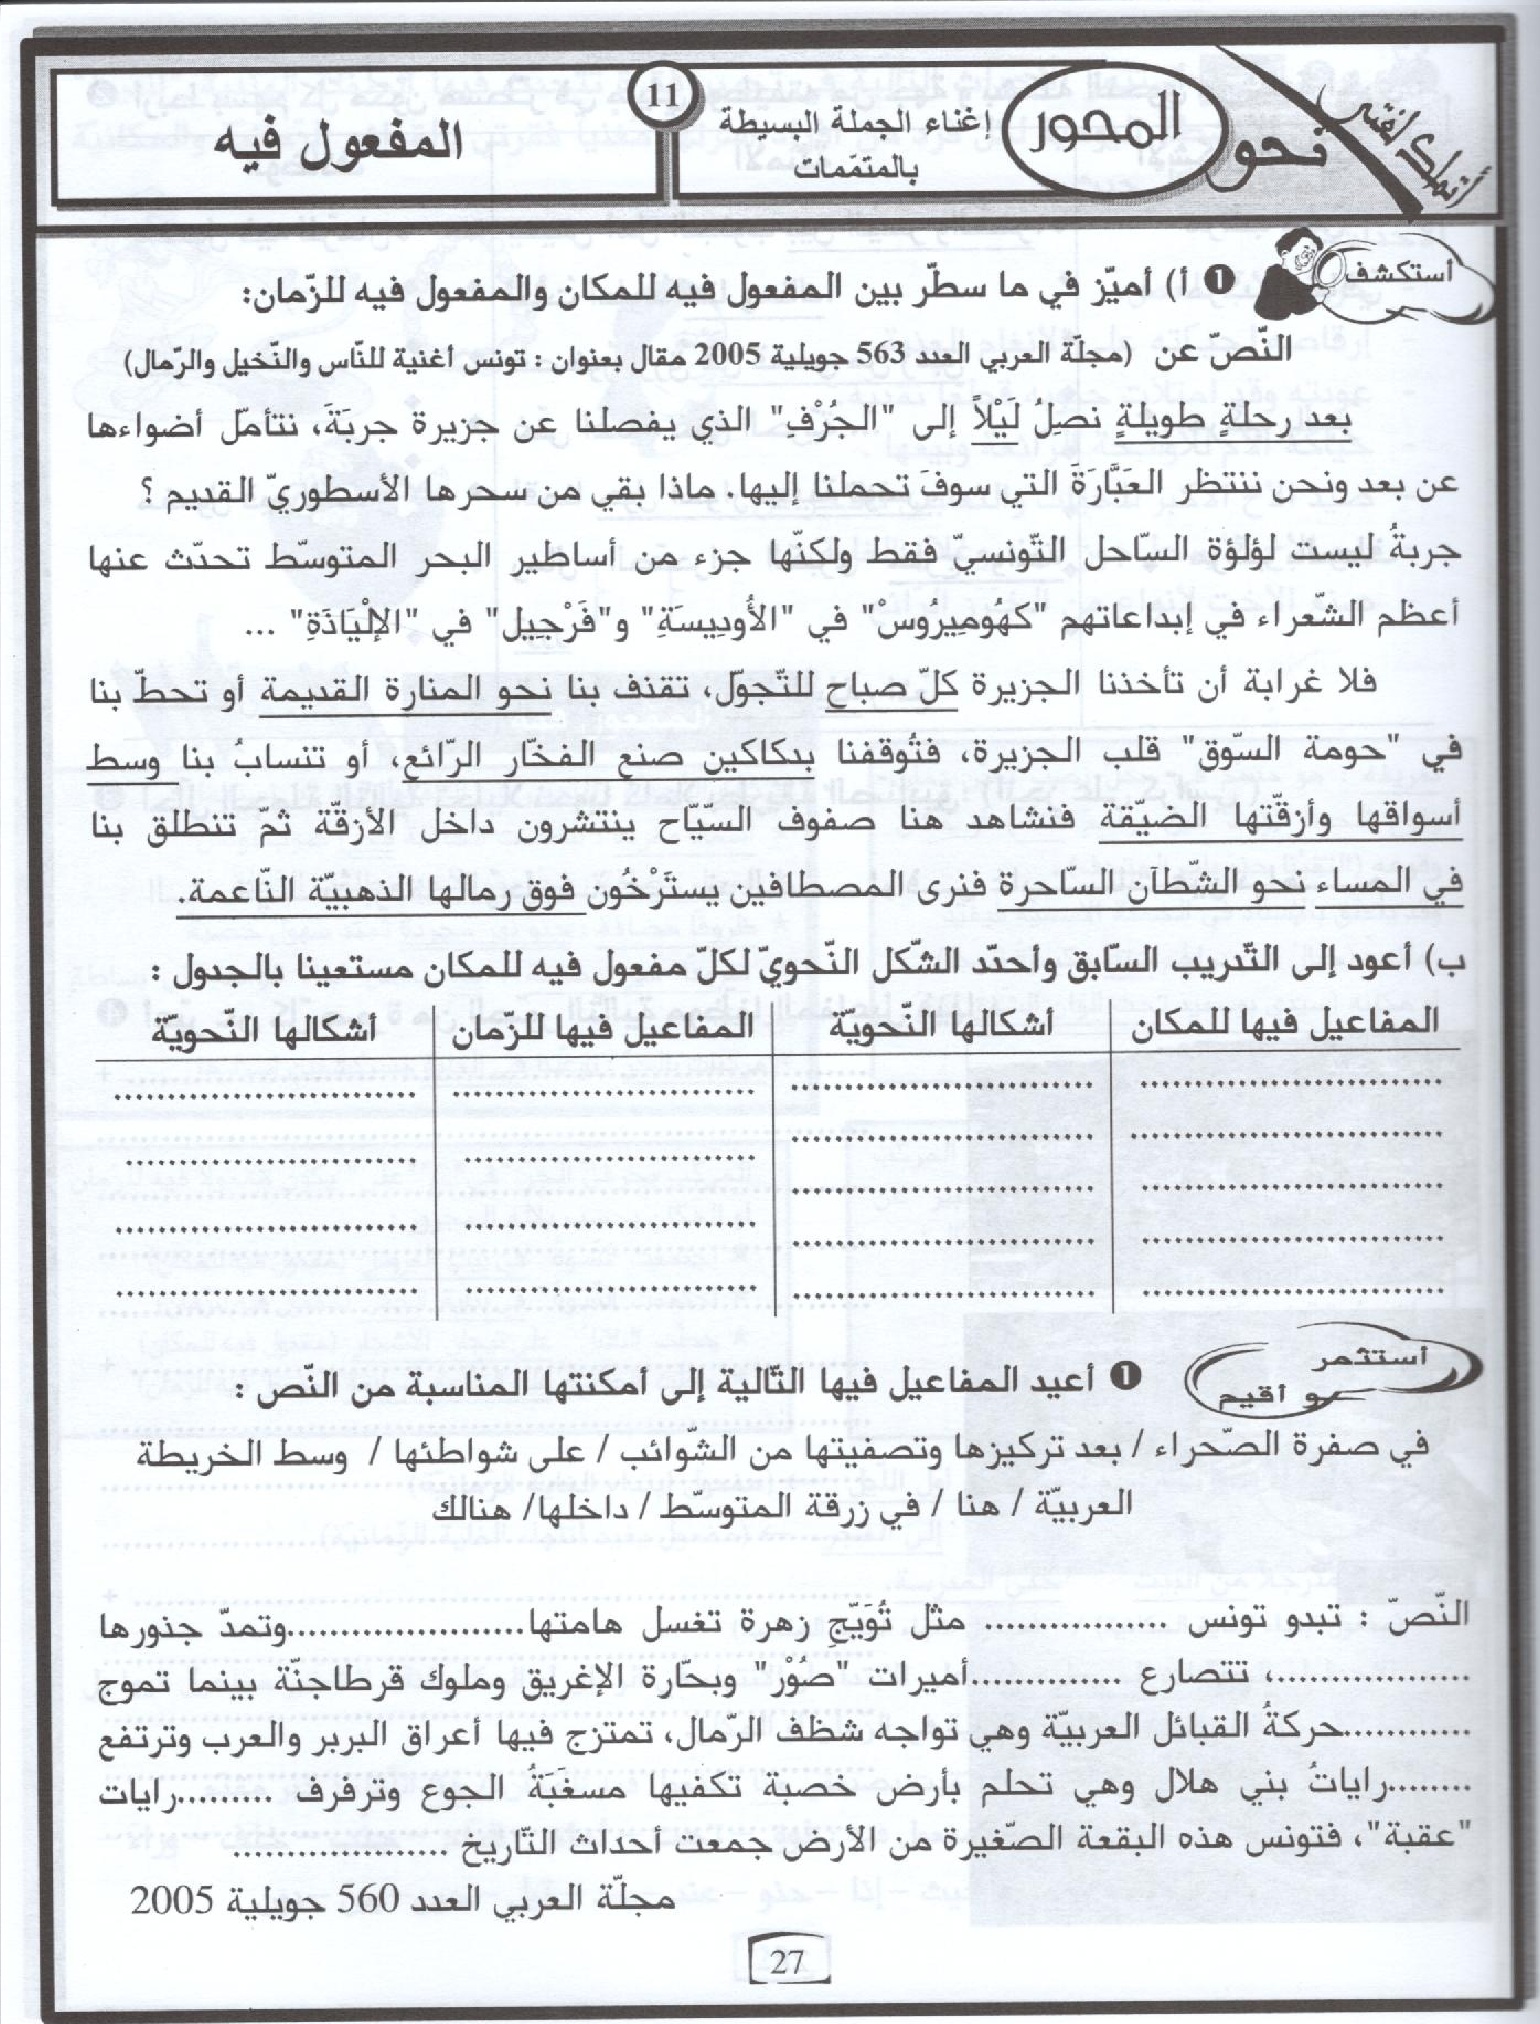 أتهادى لغتي
نحو
المحور
إغناء الجملة البسيطة
بالمتمّمات
11
المفعول فيه
أستكشف
❶ أ) أميّز في ما سطّر بين المفعول فيه للمكان والمفعول فيه للزّمان:
النّصّ عن (مجلّة العربي العدد 563 جويلية 2005 مقال بعنوان : تونس أغنية للنّاس والنّخيل والرّمال)
بعد رحلةٍ طويلةٍ نصلُ لَيْلاً إلى "الجُرْفِ" الذي يفصلنا عن جزيرة جربَةَ، نتأمّل أضواءها
عن بعد ونحن ننتظر العَبَّارَةَ التي سوفَ تحملنا إليها. ماذا بقي من سحرها الأسطوريّ القديم ؟
جربةُ ليست لؤلؤة السّاحل التّونسيّ فقط ولكنّها جزء من أساطير البحر المتوسّط تحدّث عنها
أعظم الشّعراء في إبداعاتهم "كهُومِيرُوسْ" في "الأُودِيسَةِ" و"فَرْجِيل" في "الإلْيَاذَةِ" ...
فلا غرابة أن تأخذنا الجزيرة كلّ صباح للتّجوّل، تقذف بنا نحو المنارة القديمة أو تحطّ بنا
في "حومة السّوق" قلب الجزيرة، فتُوقفنا بدكاكين صنع الفخّار الرّائع، أو تنسابُ بنا وسط
أسواقها وأزقّتها الضيّقة فنشاهد هنا صفوف السّيّاح ينتشرون داخل الأزقّة ثمّ تنطلق بنا
في المساء نحو الشّطآن السّاحرة فنرى المصطافين يستَرْخُون فوق رمالها الذهبيّة النّاعمة.
ب) أعود إلى التّدريب السّابق وأحدّد الشّكل النّحويّ لكلّ مفعول فيه للمكان مستعينا بالجدول :
المفاعيل فيها للمكان | أشكالها النّحويّة | المفاعيل فيها للزّمان | أشكالها النّحويّة
أستثمر
و أقيم
❶ أعيد المفاعيل فيها التّالية إلى أمكنتها المناسبة من النّص :
في صفرة الصّحراء / بعد تركيزها وتصفيتها من الشّوائب / على شواطئها / وسط الخريطة
العربيّة / هنا / في زرقة المتوسّط / داخلها/ هنالك
النّصّ : تبدو تونس ................. مثل تُوَيّجِ زهرة تغسل هامتها......................وتمدّ جذورها
...................، تتصارع ...............أميرات "صُوْر" وبحّارة الإغريق وملوك قرطاجنّة بينما تموج
............حركةُ القبائل العربيّة وهي تواجه شظف الرّمال، تمتزج فيها أعراق البربر والعرب وترتفع
........راياتُ بني هلال وهي تحلم بأرض خصبة تكفيها مسغَبَةُ الجوع وترفرف ..........رايات
"عقبة"، فتونس هذه البقعة الصّغيرة من الأرض جمعت أحداث التّاريخ .....................
مجلّة العربي العدد 560 جويلية 2005
27